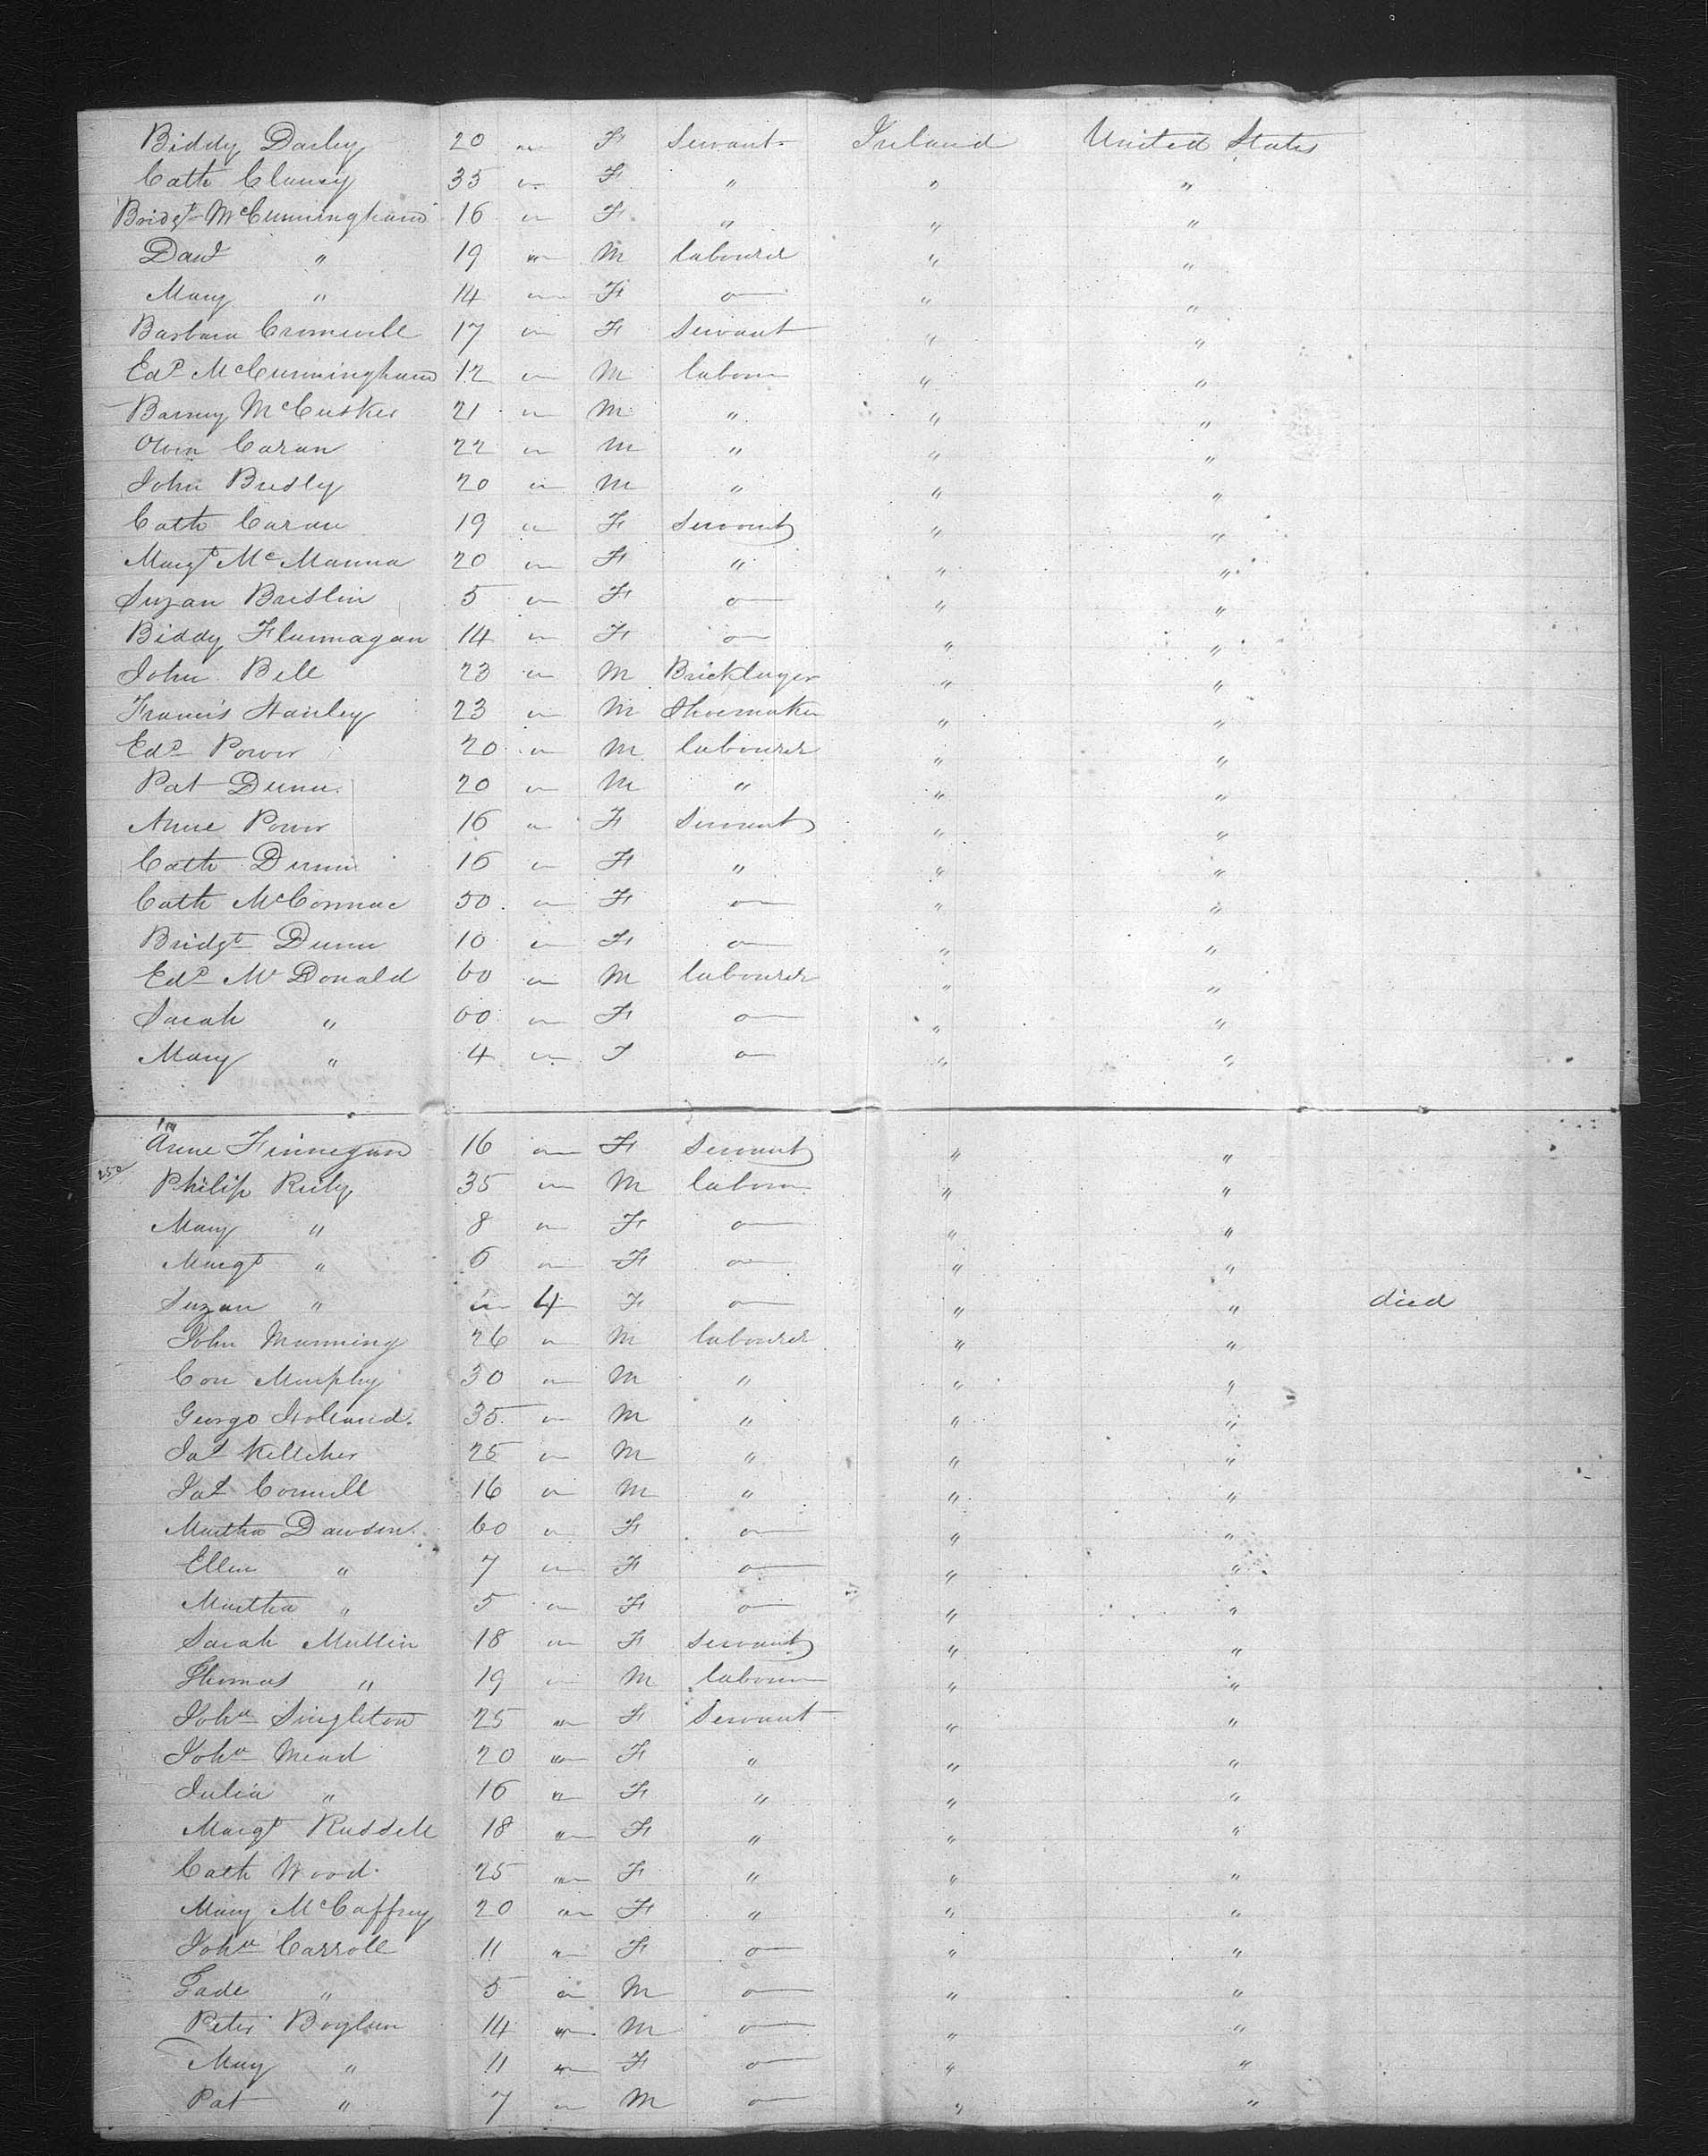 Biddy Darley 20 F Servant Ireland United States
Cath Clancy 35 F " " "
Bridgt McCunningham 16 F " " "
Danl " 19 M labourer " "
Mary " 14 F " "
Barbara Cromwell 17 F Servant " "
Edd McCunningham 12 M labour " "
Barney McCusker 21 M " " "
Owen Caran 22 M " " "
John Bresly 20 M " " "
Cath Caran 19 F Servant " "
Margt McManna 20 F " " "
Suzan Breslin 5 F " "
Biddy Flannagan 14 F " "
John Bell 23 M Bricklayer " "
Francis Hanley 23 M Shoemaker " "
Edd Power 20 M labourer " "
Pat Dunn 20 M " " "
Anne Power 16 F Servant " "
Cath Dunn 16 F " " "
Cath McCormac 50 F " "
Bridgt Dunn 10 F " "
Edd McDonald 60 M labourer " "
Sarah " 60 F " "
Mary " 4 " "
Anne Finnegan 16 F Servant " "
250 Philip Reily 35 M labour " "
Mary " 8 F " "
Margt " 6 F " "
Suzan " 4 F " " died
John Manning 26 M labourer " "
Con Murphy 30 M " " "
George Holland 35 M " " "
Jas Kelleher 25 M " " "
Jas Connell 16 M " " "
Martha Dawson 60 F " "
Ellen " 7 F " "
Martha " 5 F " "
Sarah Mullin 18 F Servant " "
Thomas " 19 M labour " "
Joha Singleton 25 F Servant " "
Joha Mead 20 F " " "
Julia " 16 F " " "
Margt Russell 18 F " " "
Cath Wood 25 F " " "
Mary McCaffrey 20 F " " "
Joha Carroll 11 F " "
Tade " 5 M " "
Peter Boylan 14 M " "
May " 11 F " "
Pat " 7 M " "